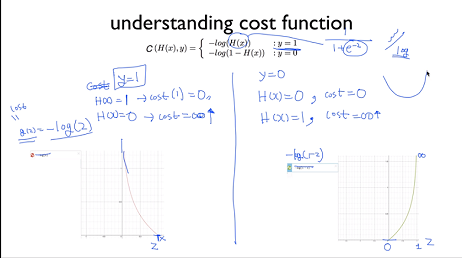 understanding cost function
C(H(x), y) = { -log(H(x)) : y = 1
-log(1 - H(x)) : y = 0
1
1+e^-z
log
cost y=1
H(x)=1 → cost(1) = 0
H(x)=0 → cost=∞↑
cost
=
g(z) = -log(z)
z
y=0
H(x)=0, cost=0
H(x)=1, cost=∞↑
-log(1-z)
∞
0 1 z